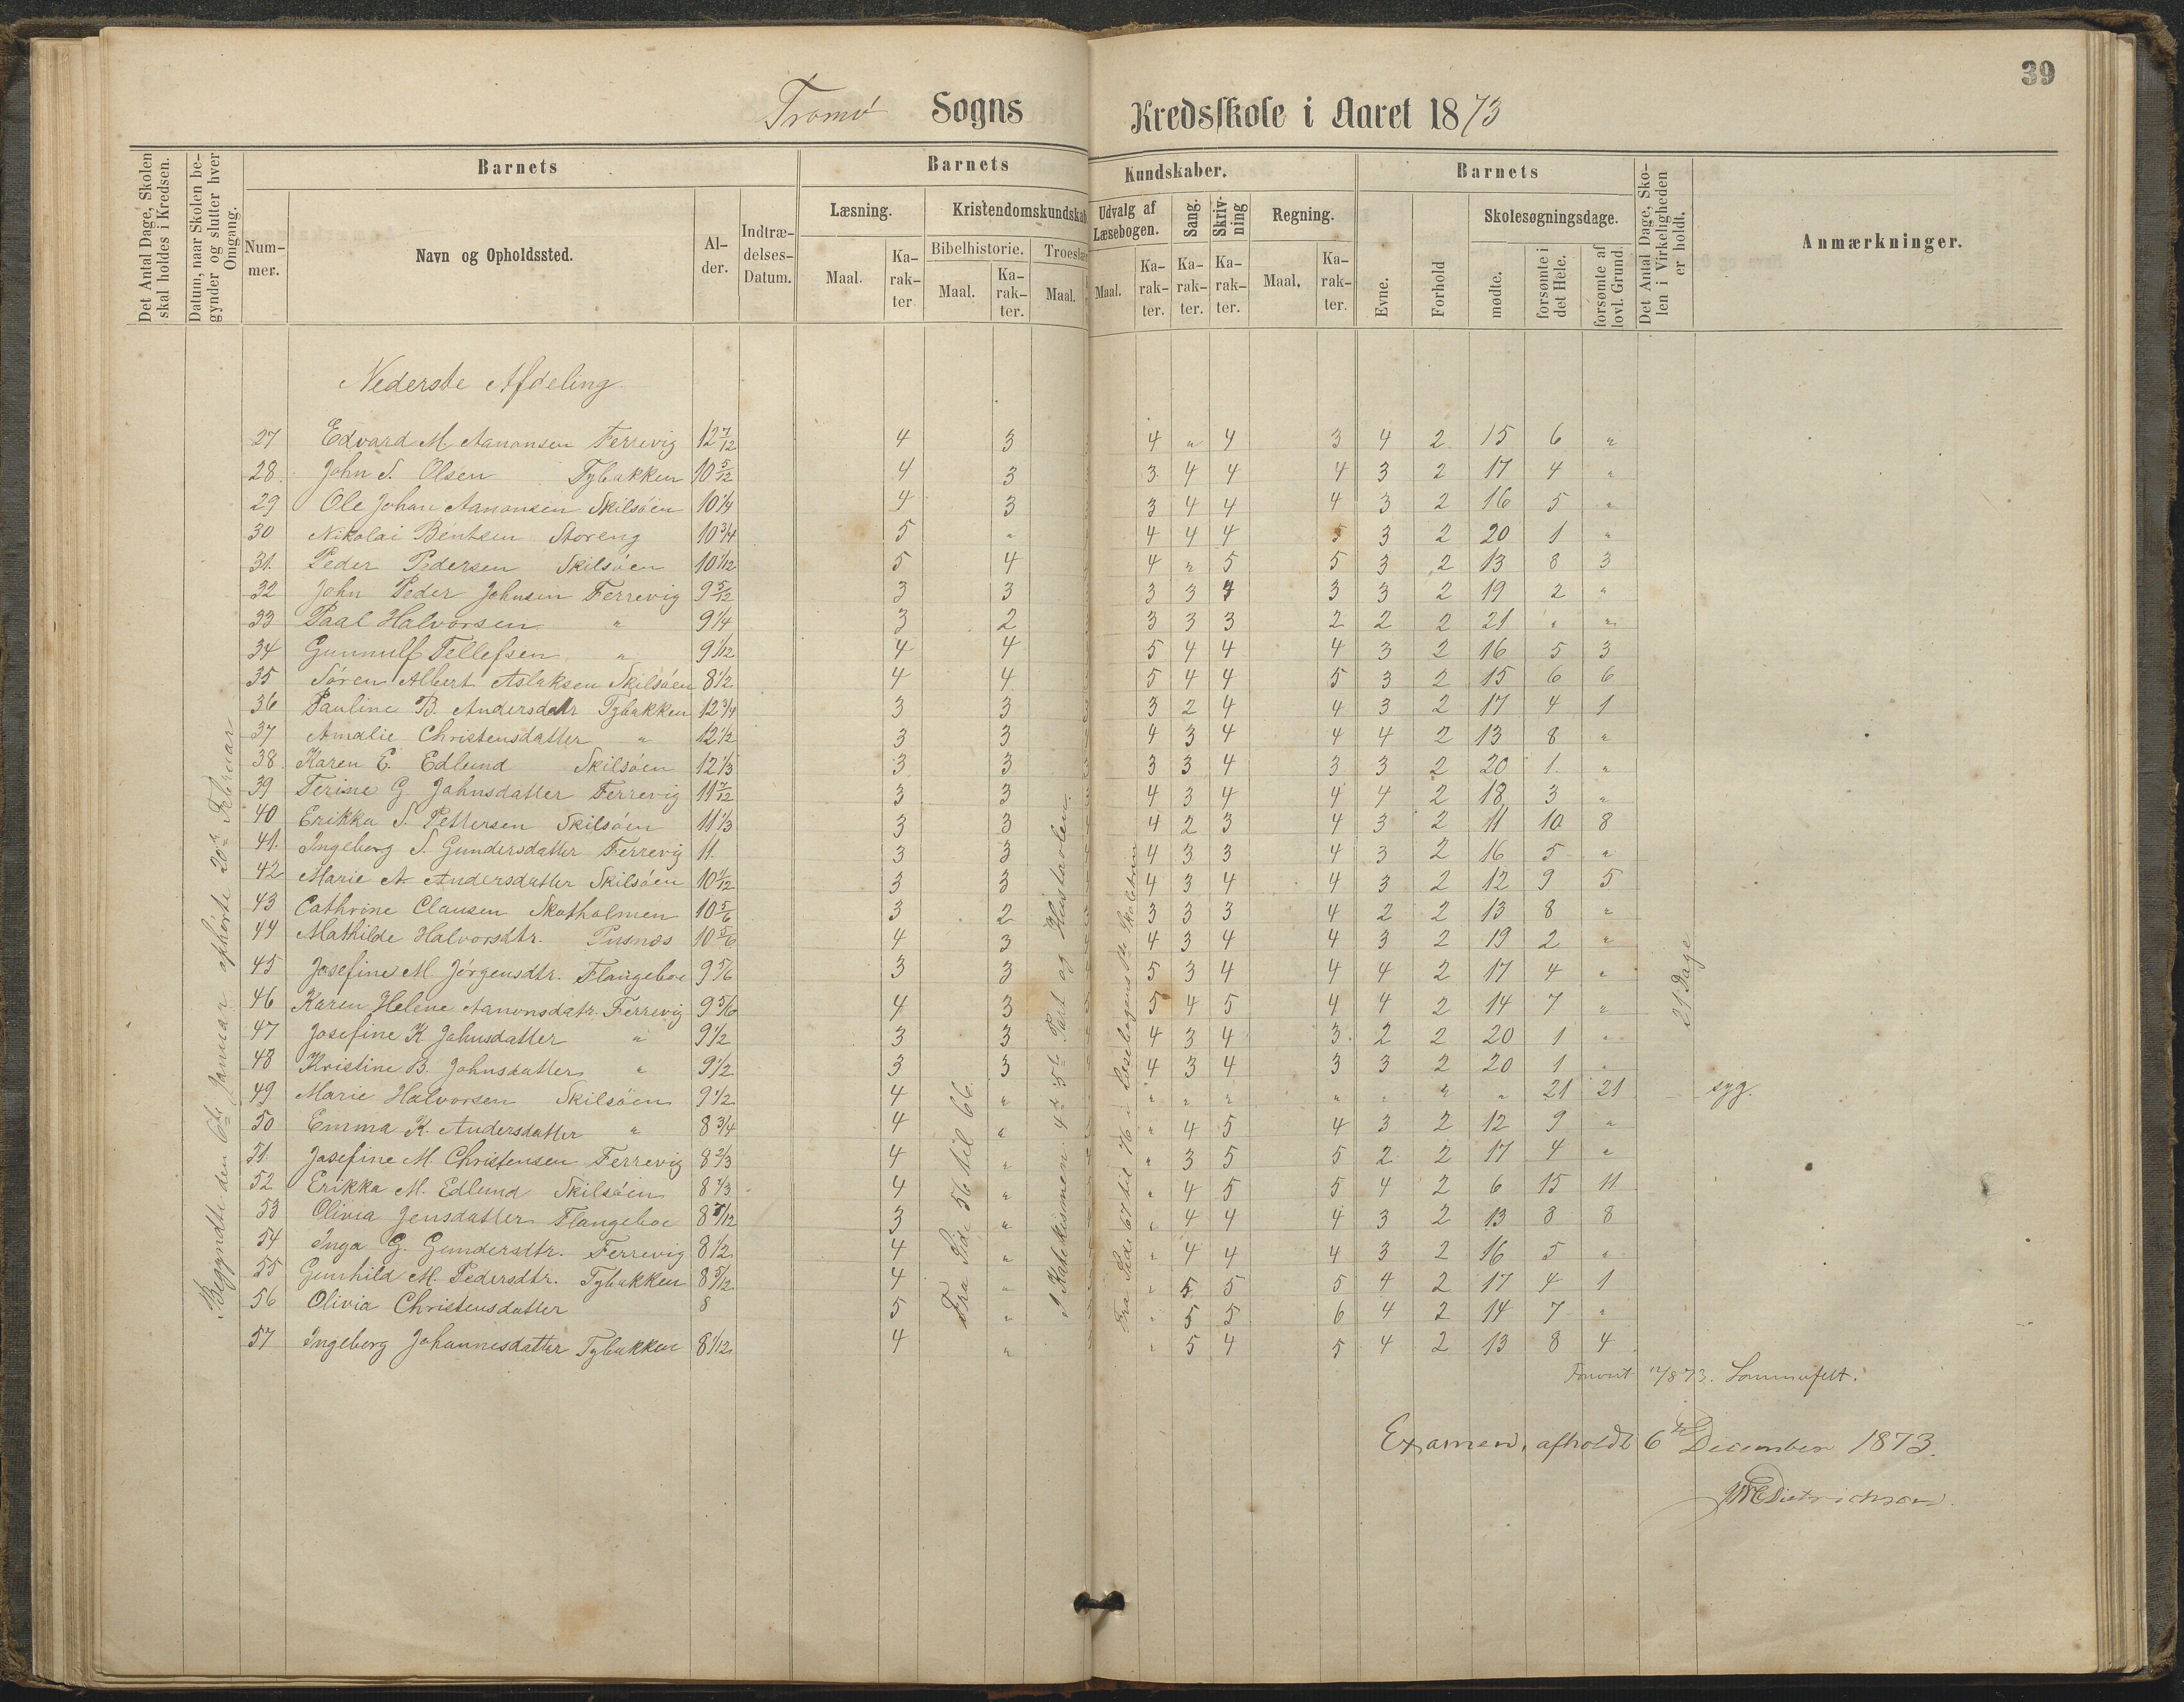 39
Tromø Sogns Kredsskole i Aaret 1873
Det Antal Dage, Skolen skal holdes i Kredsen.
Datum, naar Skolen begynder og slutter hver Omgang.
Barnets
Barnets
Kundskaber.
Barnets
Det Antal Dage, Skolen i Virkeligheden er holdt.
Anmærkninger.
Nummer.
Navn og Opholdssted.
Alder.
Indtrædelses-Datum.
Læsning.
Kristendomskundskab
Udvalg af Læsebogen.
Sang.
Skrivning
Regning.
Evne.
Forhold
Skolesøgningsdage.
Maal.
Karakter
Bibelhistorie.
Troeslære
Maal.
Karakter.
Maal.
Maal.
Karakter.
Karakter.
Karakter.
Maal.
Karakter.
mødte.
forsømte i det Hele.
forsømte af lovl. Grund.
Nederste Afdeling
27 Edvard M. Aanonsen Færrevig 12 7/12 4 3 4 " 4 3 4 2 15 6 "
28. John S. Olsen Tybakken 10 5/12 4 3 3 4 4 4 3 2 17 4 "
29 Ole Johan Aanonsen Skilsøen 10 1/4 4 3 3 4 4 4 3 2 16 5 "
30 Nikolai Bentsen Storeng 10 3/4 5 " 4 4 4 5 3 2 20 1 "
31. Peder Pedersen Skilsøen 10 1/12 5 4 4 " 5 5 3 2 13 8 3
32 John Peder Johnsen Færrevig 9 5/12 3 3 3 3 3 3 3 2 19 2 "
33 Paal Halvorsen " 9 1/4 3 2 3 3 3 2 2 2 21 " "
34 Gunnulf Tellefsen " 9 1/12 4 4 5 4 4 4 3 2 16 5 3
35 Søren Albert Aslaksen Skilsøen 8 1/2 4 4 5 4 4 5 3 2 15 6 6
36 Pauline B. Andersdatr Tybakken 12 3/4 3 3 3 2 4 4 3 2 17 4 1
37 Amalie Christensdatter " 12 1/2 3 3 4 3 4 4 4 2 13 8 "
38. Karen E. Edlund Skilsøen 12 1/3 3 3 3 3 4 3 3 2 20 1. "
39 Terine G. Johnsdatter Færrevig 11 7/12 3 3 4 3 4 4 4 2 18 3 "
40 Erikka S. Pettersen Skilsøen 11 1/3 3 3 4 2 3 4 3 2 11 10 8
41. Ingeborg S. Gundersdatter Færrevig 11. 3 3 4 3 3 4 3 2 16 5 "
42 Marie A. Andersdatter Skilsøen 10 11/12 3 3 4 3 4 4 3 2 12 9 5
43 Cathrine Clausen Skotholmen 10 5/6 3 2 3 3 3 4 2 2 13 8 "
44 Mathilde Halvorsdtr. Pusnæs 10 5/6 4 3 4 3 4 4 3 2 19 2 "
45 Josefine M. Jørgensdtr. Flangeboe 9 5/6 3 3 5 3 4 4 4 2 17 4 "
46 Karen Helene Aanonsdatr. Færrevig 9 5/6 4 3 5 4 5 4 4 2 14 7 "
47 Josefine K Johnsdatter " 9 1/2 3 3 4 3 4 3. 2 2 20 1 "
48 Kristine B. Johnsdatter " 9 1/2 3 3 4 3 4 3 3 2 20 1 "
49 Marie Halvorsen Skilsøen 9 1/2 4 " " " " " " " " 21 21 syg.
50 Emma K. Andersdatter " 8 3/4 4 " " 4 5 4 3 2 12 9 "
51. Josefine M. Christensen Færrevig 8 2/3 4 " " 3 5 5 2 2 17 4 "
52 Erikka M. Edlund Skilsøen 8 2/3 4 " " 4 5 5 4 2 6 15 11
53 Olivia Jensdatter Flangeboe 8 7/12 3 " " 4 4 4 3 2 13 8 8
54 Inga G. Gundersdtr. Færrevig 8 1/2 4 " " 4 4 4 3 2 16 5 "
55 Gunhild M. Pedersdtr. Tybakken 8 5/12 4 " " 5 5 5 4 2 17 4 1
56 Olivia Christensdatter 8 5 " " 5 5 6 4 2 14 7 "
57 Ingeborg Johannesdatter Tybakken 8 1/12 4 " " 5 4 5 4 2 13 8 4
Begyndte den 6te Januar ophørte 20de Februar
Fra Side 56 til 66.
I Katekismen 4de 5te Part og Hustavlen.
Fra Side 67 til 76 i Læsebogens
21 Dage
12/8 73. Sommerfelt.
Examen, afholdt 6te December 1873.
Dietrichson